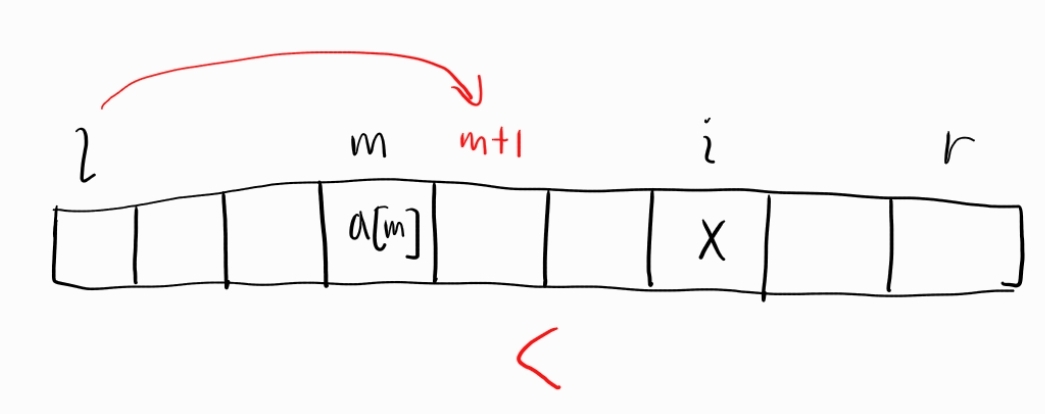 l m m+1 i r
a[m] X
<